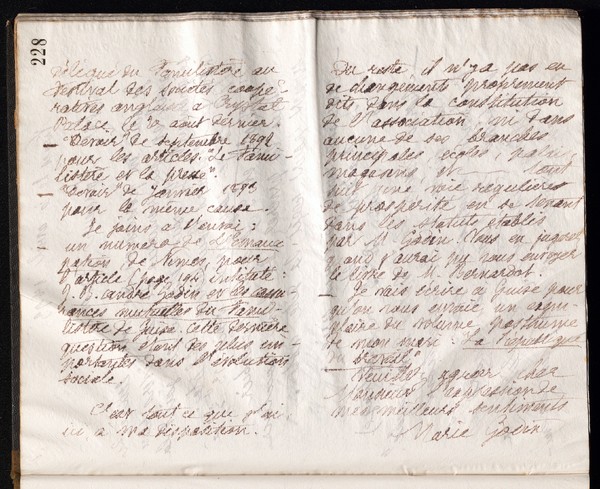 228
délégué du Familistère au
festival des sociétés coopé-
ratives anglaises à Crystal
Palace le août dernier.
"Devoir" de septembre 1892
pour les articles "Le Fami-
listère et la presse".
"Devoir" de Janvier 1893
pour la même cause.
Je joins à l'envoi:
un numéro de l'Emanci-
pation de Nîmes pour
l'article (page 191) intitulé:
J. Bte André Godin et les assu-
rances mutuelles du Fami-
listère de Guise. Cette dernière
question étant des plus im-
portantes dans l'évolution
sociale.
C'est tout ce que j'ai
ici à ma disposition.
Du reste, il n'y a pas eu
de changements proprement
dits dans la constitution
de l'association, ni dans
aucune de ses branches
principales écoles,
magasins etc Tout
suit une voie régulière
de prospérité en se tenant
dans les statuts établis
par M. Godin. Vous en jugerez
quand j'aurai pu vous envoyer
le livre de M. Bernardot.
Je vais écrire à Guise pour
qu'on vous envoie un exem-
plaire du volume posthume
de mon mari: La République
du travail"
Veuillez agréer
Monsieur l'expression de
mes meilleurs sentiments
Marie Godin